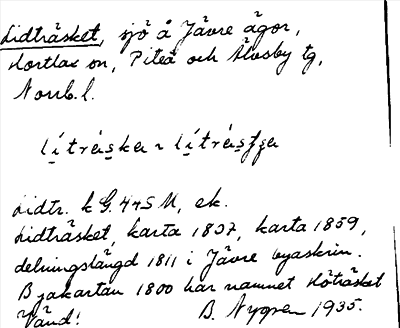 Lidträsket, sjö å Jävre ägor,
Hortlax sn, Piteå och Älvsby tg,
Norrb. l.
lítrӓska ~ lítrӓs
Lidtr. k G. 44 S M, ek.
Lidträsket, karta 1837, karta 1859,
delningslängd 1811 i Jävre byaskrin.
Byakartan 1800 har namnet Höträsket
Vänd! B. Nygren 1935.